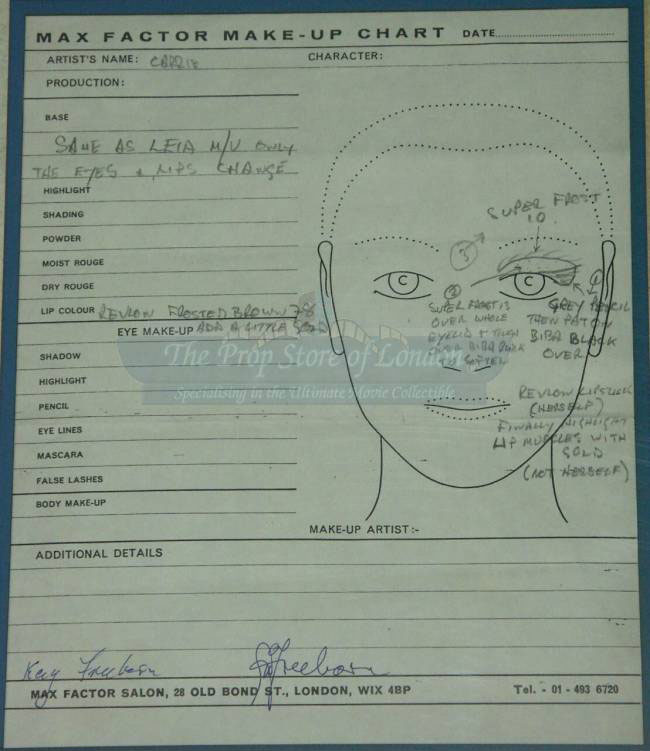 MAX FACTOR MAKE-UP CHART DATE
ARTIST'S NAME: CARRIE CHARACTER:
PRODUCTION:
BASE
SAME AS LEIA M/U ONLY
THE EYES & LIPS CHANGE
HIGHLIGHT
SHADING
POWDER
MOIST ROUGE
DRY ROUGE
LIP COLOUR REVLON FROSTED BROWN 78
ADD A LITTLE GOLD
EYE MAKE-UP
SHADOW
HIGHLIGHT
PENCIL
EYE LINES
MASCARA
FALSE LASHES
BODY MAKE-UP
SUPER FROST
10
3
C C
2
SUPER FROST 13
OVER WHOLE
EYELID & THEN
OVER BIBA BLACK
TO SOFTEN
1
GREY PENCIL
THEN PAT ON
BIBA BLACK
OVER
REVLON LIPSTICK
(HERSELF)
FINALLY HIGHLIGHT
LIP MUSCLES WITH
GOLD
(NOT HERSELF)
The Prop Store of London
Specialising in the Ultimate Movie Collectible
MAKE-UP ARTIST:-
ADDITIONAL DETAILS
Kay Freeborn Freeborn
MAX FACTOR SALON, 28 OLD BOND ST., LONDON, WIX 4BP Tel. - 01 - 493 6720